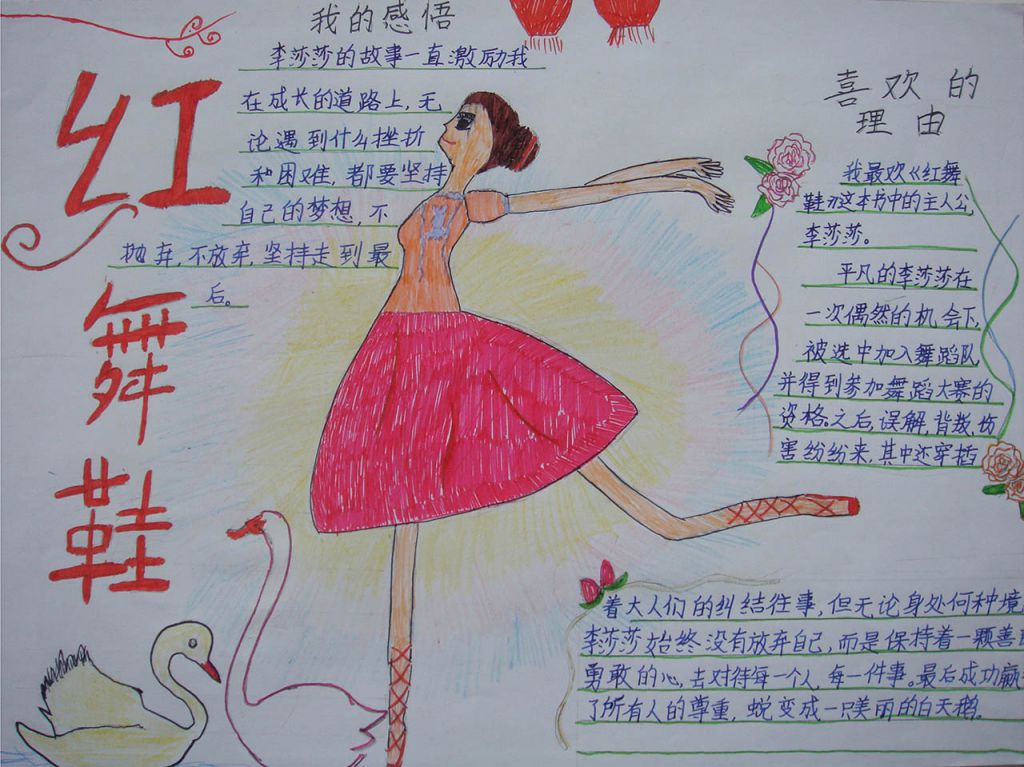 红舞鞋
我的感悟
李莎莎的故事一直激励我
在成长的道路上,无
论遇到什么挫折
和困难,都要坚持
自己的梦想,不
抛弃,不放弃,坚持走到最
后。
喜欢的
理由
我最欢《红舞
鞋》这本书中的主人公,
李莎莎。
平凡的李莎莎在
一次偶然的机会下,
被选中加入舞蹈队
并得到参加舞蹈大赛的
资格。之后,误解,背叛,伤
害纷纷来,其中还穿插
着大人们的纠结往事,但无论身处何种境
李莎莎始终没有放弃自己,而是保持着一颗善
勇敢的心,去对待每一个人,每一件事。最后成功赢
了所有人的尊重,蜕变成一只美丽的白天鹅。